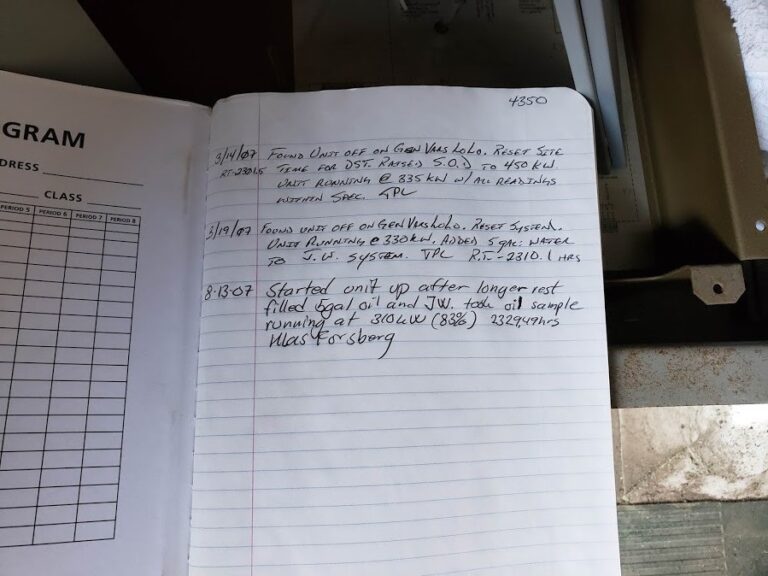 GRAM
DRESS
CLASS
PERIOD 5 PERIOD 6 PERIOD 7 PERIOD 8
4350
3/14/07 FOUND UNIT OFF ON GEN VARS LOLO. RESET SITE
RT-2301.5 TIME FOR DST. RAISED S.O.D TO 450 KW.
UNIT RUNNING @ 335 KW W/ ALL READINGS
WITHIN SPEC. TPL
3/19/07 FOUND UNIT OFF ON GEN VARS LOLO. RESET SYSTEM.
UNIT RUNNING @ 330KW. ADDED 5 GAL. WATER
TO J.W. SYSTEM. TPL R.T.-2310.1 HRS
8-13-07 Started unit up after longer rest
filled 5gal oil and JW. took oil sample
running at 310kW (83%) 2329,49hrs
Klas Forsberg